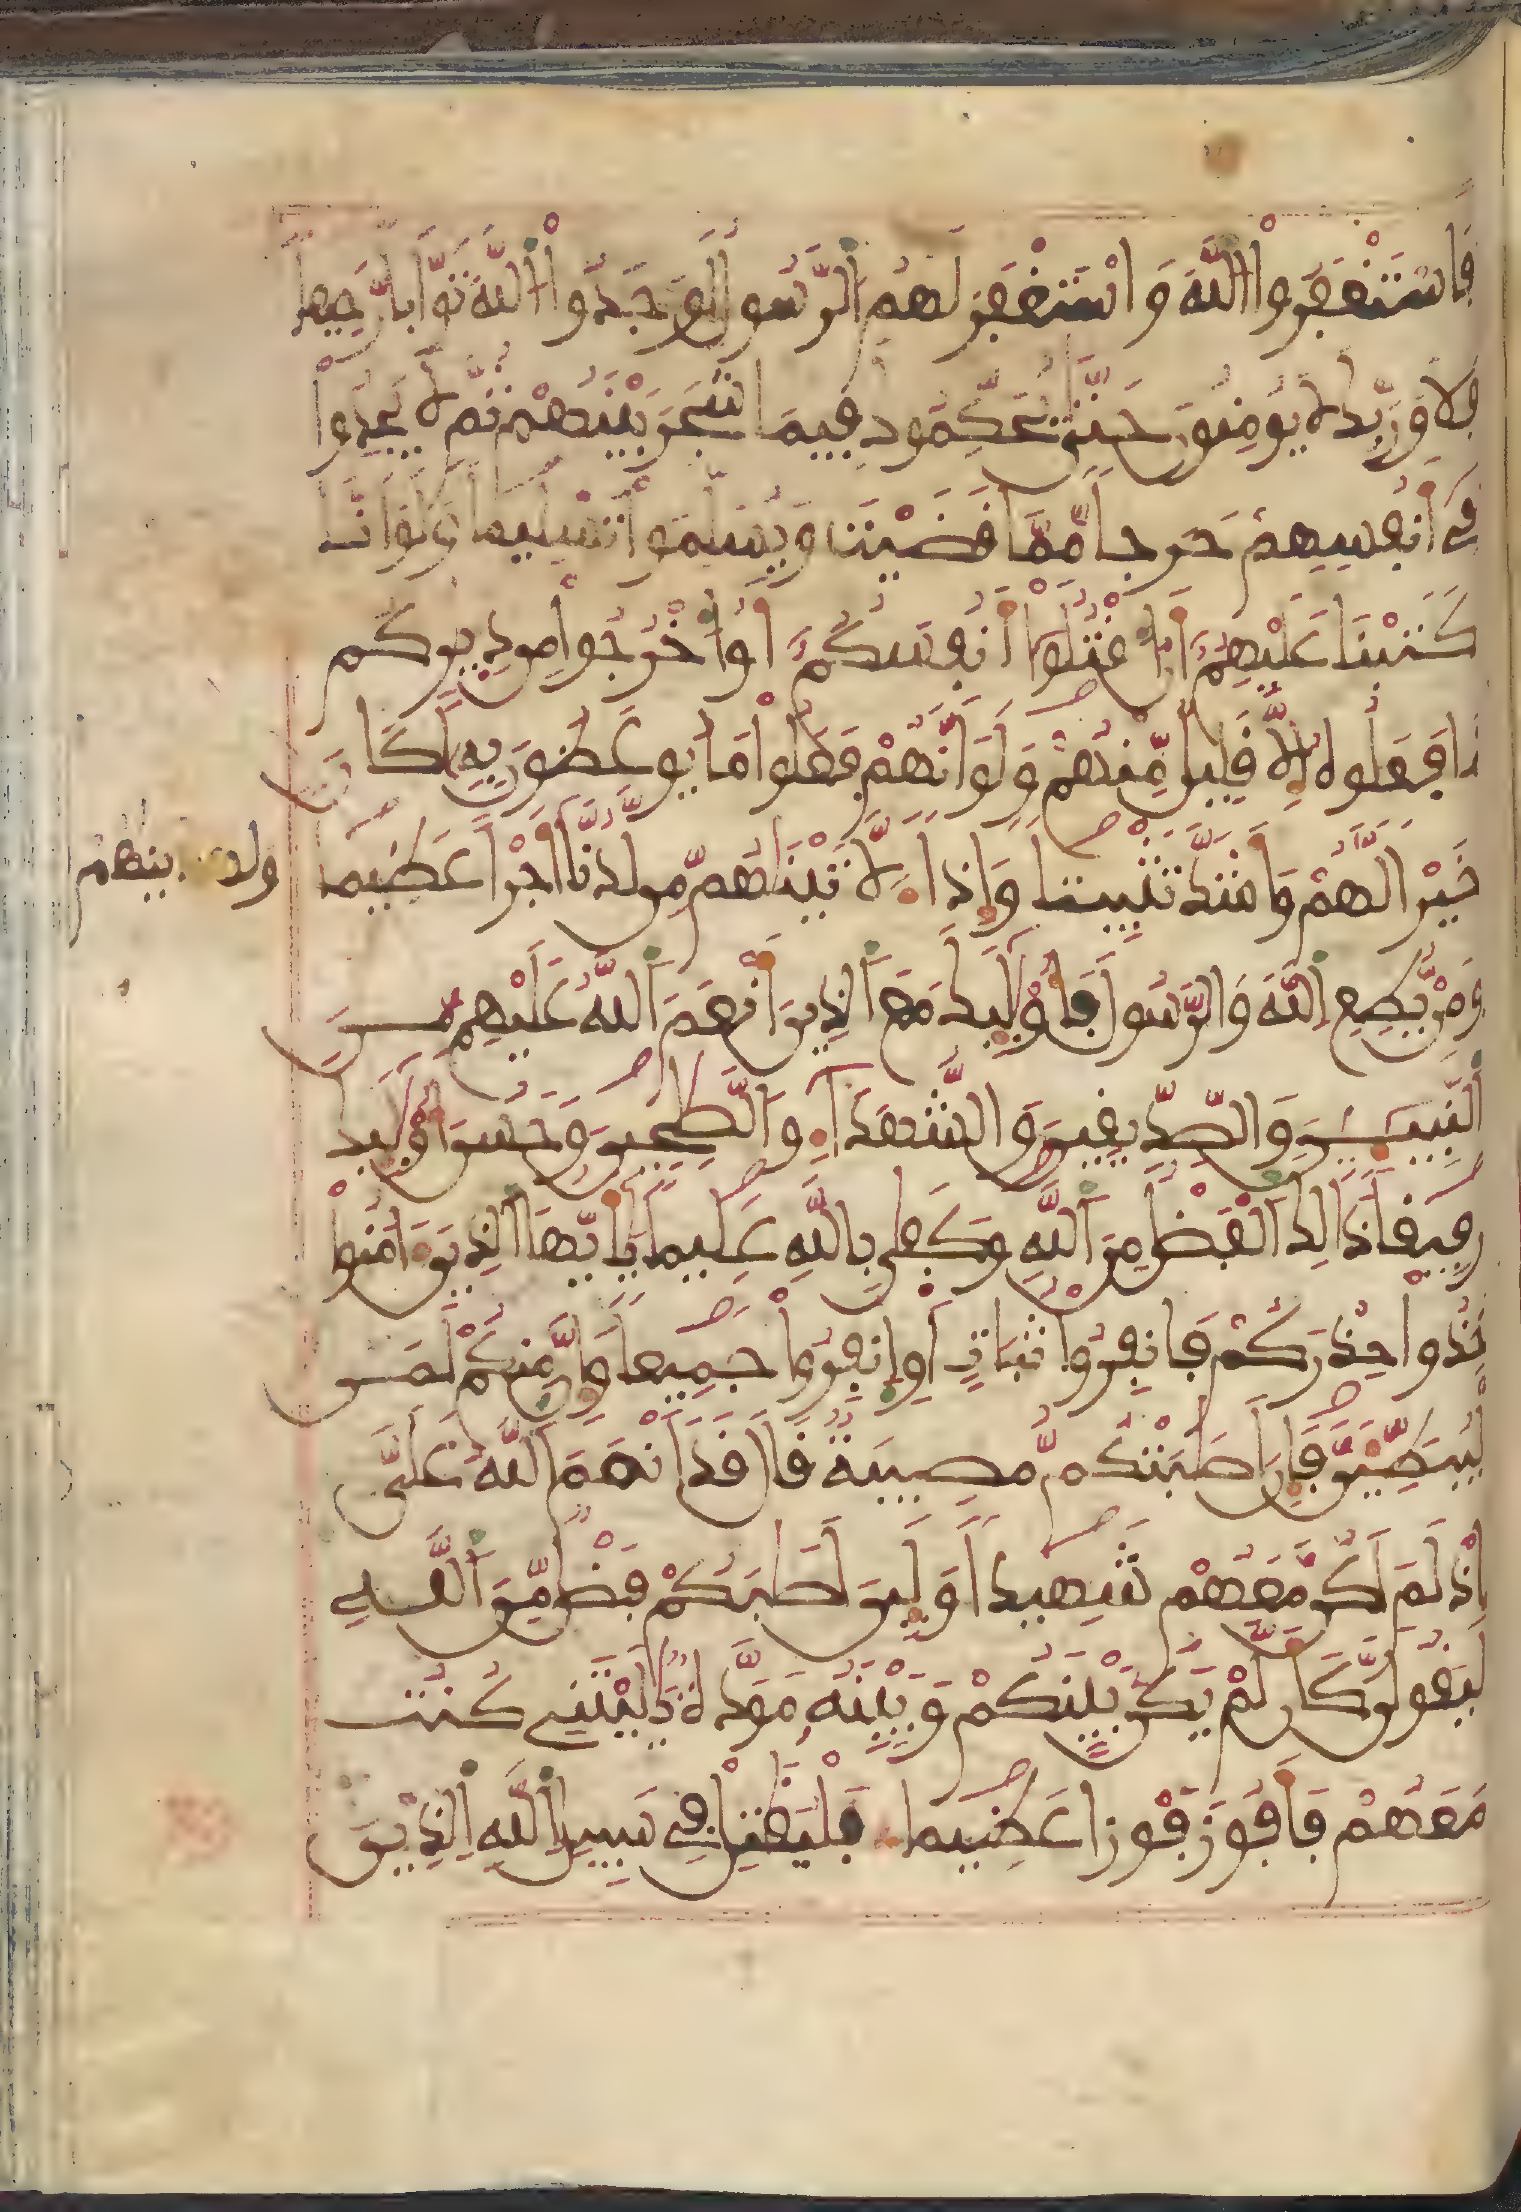 فَاسْتَغْفَرُوا اللَّهَ وَاسْتَغْفَرَ لَهُمُ الرَّسُولُ لَوَجَدُوا اللَّهَ تَوَّابًا رَّحِيمًا
فَلَا وَرَبِّكَ لَا يُومِنُونَ حَتَّى يُحَكِّمُوكَ فِيمَا شَجَرَ بَيْنَهُمْ ثُمَّ لَا يَجِدُوا
فِي أَنفُسِهِمْ حَرَجًا مِّمَّا قَضَيْتَ وَيُسَلِّمُوا تَسْلِيمًا وَلَوَ انَّا
كَتَبْنَا عَلَيْهِمُ أَنُ اقْتُلُوا أَنفُسَكُمُ أَوُ اخْرُجُوا مِن دِيٰرِكُم
مَّا فَعَلُوهُ إِلَّا قَلِيلٌ مِّنْهُمْ وَلَوَ انَّهُمْ فَعَلُوا مَا يُوعَظُونَ بِهِ لَكَانَ
خَيْرًا لَّهُمْ وَأَشَدَّ تَثْبِيتًا وَإِذًا لَّأَتَيْنَٰهُم مِّن لَّدُنَّا أَجْرًا عَظِيمًا
وَلهدينهم
وَمَنْ يُّطِعِ اللَّهَ وَالرَّسُولَ فَأُوْلَٰئِكَ مَعَ الَّذِينَ أَنْعَمَ اللَّهُ عَلَيْهِم مِّنَ
النَّبِيـِٕينَ وَالصِّدِّيقِينَ وَالشُّهَدَاءِ وَالصَّٰلِحِينَ وَحَسُنَ أُوْلَٰئِكَ
رَفِيقًا ذَٰلِكَ الْفَضْلُ مِنَ اللَّهِ وَكَفَىٰ بِاللَّهِ عَلِيمًا يَٰأَيُّهَا الَّذِينَ ءَامَنُوا
خُذُوا حِذْرَكُمْ فَانفِرُوا ثُبَاتٍ أَوِ انفِرُوا جَمِيعًا وَإِنَّ مِنكُمْ لَمَن
لَّيُبَطِّئَنَّ فَإِنَ اَصَٰبَتْكُم مُّصِيبَةٌ قَالَ قَدَ اَنْعَمَ اللَّهُ عَلَيَّ
إِذْ لَمَ اَكُن مَّعَهُمْ شَهِيدًا وَلَئِنَ اَصَٰبَكُمْ فَضْلٌ مِّنَ اللَّهِ
لَيَقُولَنَّ كَأَن لَّمْ يَكُن بَيْنَكُمْ وَبَيْنَهُ مَوَدَّةٌ يَٰلَيْتَنِي كُنتُ
مَعَهُمْ فَأَفُوزَ فَوْزًا عَظِيمًا فَلْيُقَٰتِلْ فِي سَبِيلِ اللَّهِ الَّذِينَ